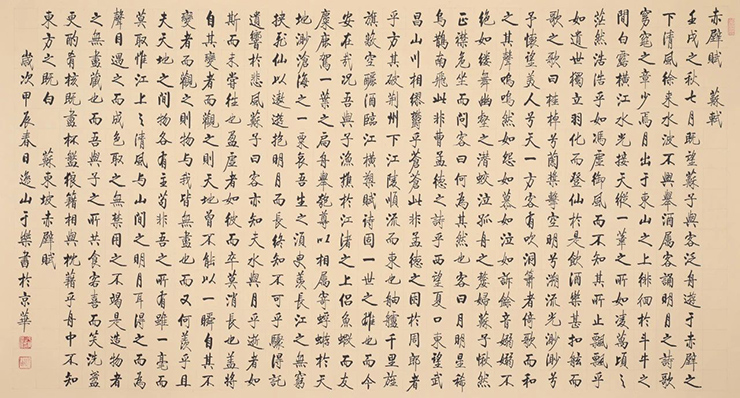 赤壁賦 蘇軾
壬戌之秋七月既望蘇子與客泛舟遊于赤壁之
下清風徐來水波不興舉酒屬客誦明月之詩歌
窈窕之章少焉月出于東山之上徘徊於斗牛之
間白露橫江水光接天縱一葦之所如凌萬頃之
茫然浩浩乎如馮虛御風而不知其所止飄飄乎
如遺世獨立羽化而登仙於是飲酒樂甚扣舷而
歌之歌曰桂棹兮蘭槳擊空明兮溯流光渺渺兮
予懷望美人兮天一方客有吹洞簫者倚歌而和
之其聲嗚嗚然如怨如慕如泣如訴餘音嫋嫋不
絕如縷舞幽壑之潛蛟泣孤舟之嫠婦蘇子愀然
正襟危坐而問客曰何為其然也客曰月明星稀
烏鵲南飛此非曹孟德之詩乎西望夏口東望武
昌山川相繆鬱乎蒼蒼此非孟德之困于周郎者
乎方其破荆州下江陵順流而東也舳艫千里旌
旗蔽空釃酒臨江橫槊賦詩固一世之雄也而今
安在哉況吾與子漁樵於江渚之上侶魚蝦而友
麋鹿駕一葉之扁舟舉匏尊以相屬寄蜉蝣於天
地渺滄海之一粟哀吾生之須臾羨長江之無窮
挾飛仙以遨遊抱明月而長終知不可乎驟得託
遺響於悲風蘇子曰客亦知夫水與月乎逝者如
斯而未嘗往也盈虛者如彼而卒莫消長也蓋將
自其變者而觀之則天地曾不能以一瞬自其不
變者而觀之則物與我皆無盡也而又何羨乎且
夫天地之間物各有主苟非吾之所有雖一毫而
莫取惟江上之清風與山間之明月耳得之而為
聲目遇之而成色取之無禁用之不竭是造物者
之無盡藏也而吾與子之所共食客喜而笑洗盞
更酌肴核既盡杯盤狼籍相與枕藉乎舟中不知
東方之既白 蘇東坡赤壁賦
歲次甲辰春日逸山于樂書於京華